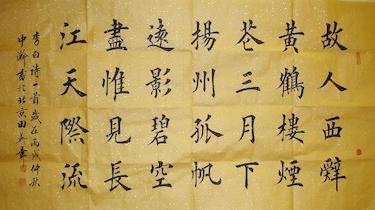 故人西辭
黃鶴樓煙
花三月下
揚州孤帆
遠影碧空
盡惟見長
江天際流
李白詩一首歲在丙戌仲秋
書於北京田